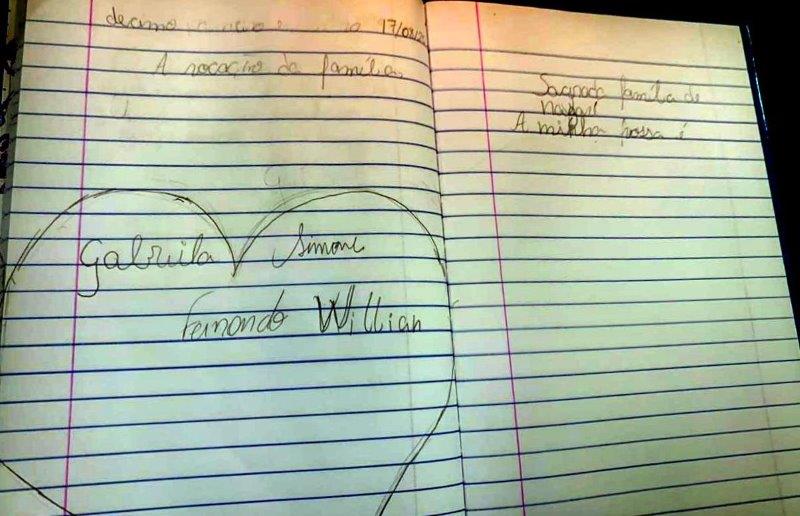 decimo 17/08/2
A vocação da família
Gabriela Simone
Fernando Willian
Sagrada família de
nazaré
A minha nossa é